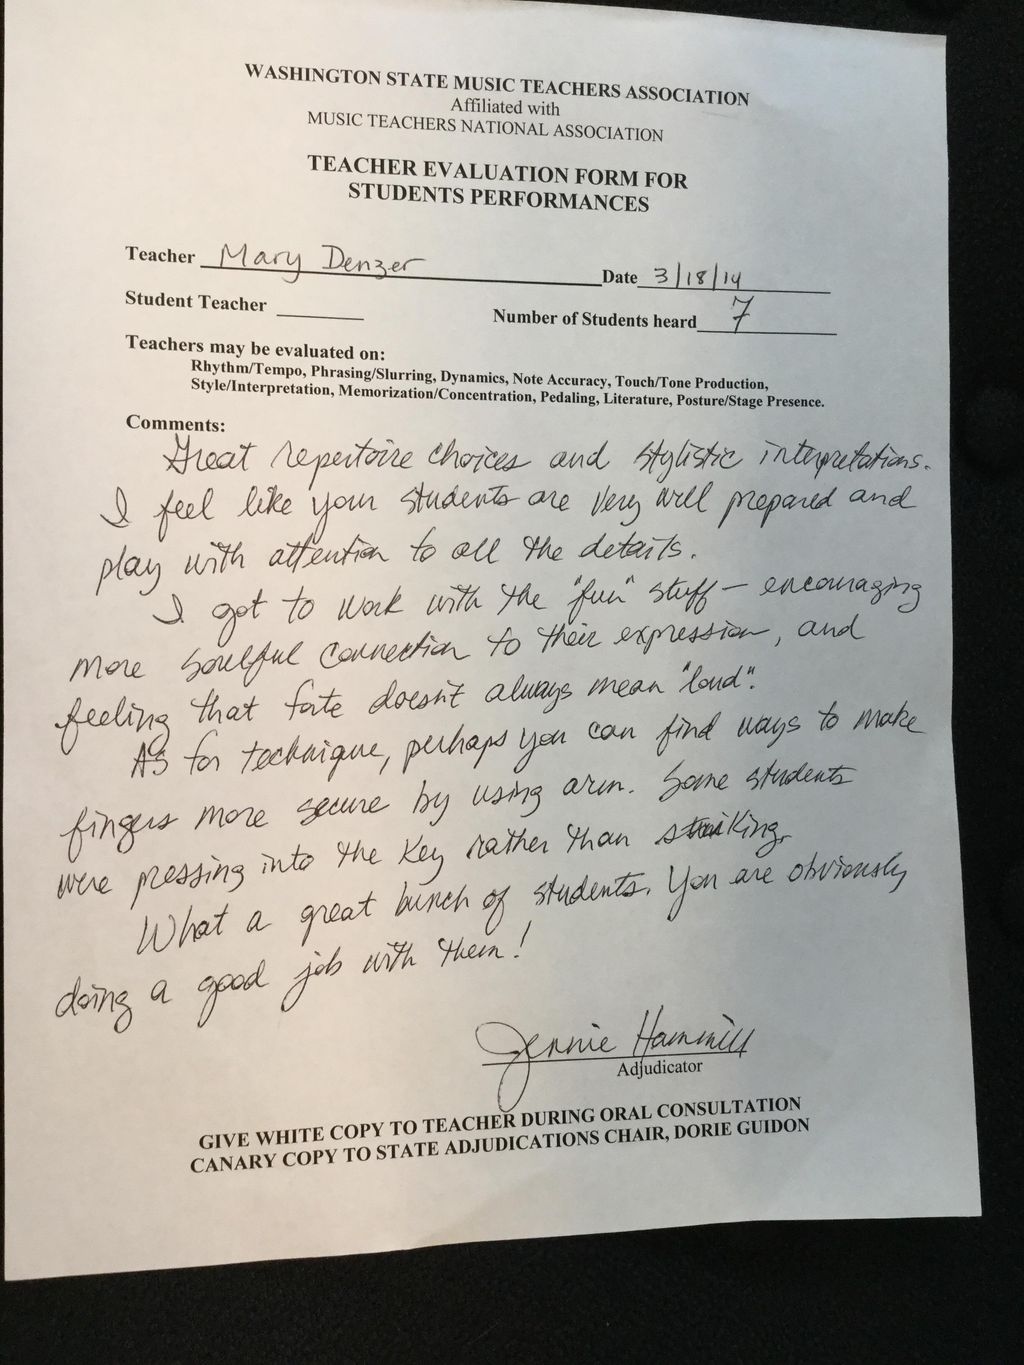 WASHINGTON STATE MUSIC TEACHERS ASSOCIATION
Affiliated with
MUSIC TEACHERS NATIONAL ASSOCIATION
TEACHER EVALUATION FORM FOR
STUDENTS PERFORMANCES
Teacher Mary Denzer Date 3/18/14
Student Teacher
Number of Students heard 7
Teachers may be evaluated on:
Rhythm/Tempo, Phrasing/Slurring, Dynamics, Note Accuracy, Touch/Tone Production,
Style/Interpretation, Memorization/Concentration, Pedaling, Literature, Posture/Stage Presence.
Comments:
Great repertoire choices and stylistic interpretations.
I feel like your students are very well prepared and
play with attention to all the details.
I got to work with the "fun" stuff – encouraging
more soulful connection to their expression, and
feeling that forte doesn't always mean "loud".
As for technique, perhaps you can find ways to make
fingers more secure by using arm. Some students
were pressing into the key rather than striking.
What a great bunch of students. You are obviously
doing a good job with them!
Jennie Hammill
Adjudicator
GIVE WHITE COPY TO TEACHER DURING ORAL CONSULTATION
CANARY COPY TO STATE ADJUDICATIONS CHAIR, DORIE GUIDON